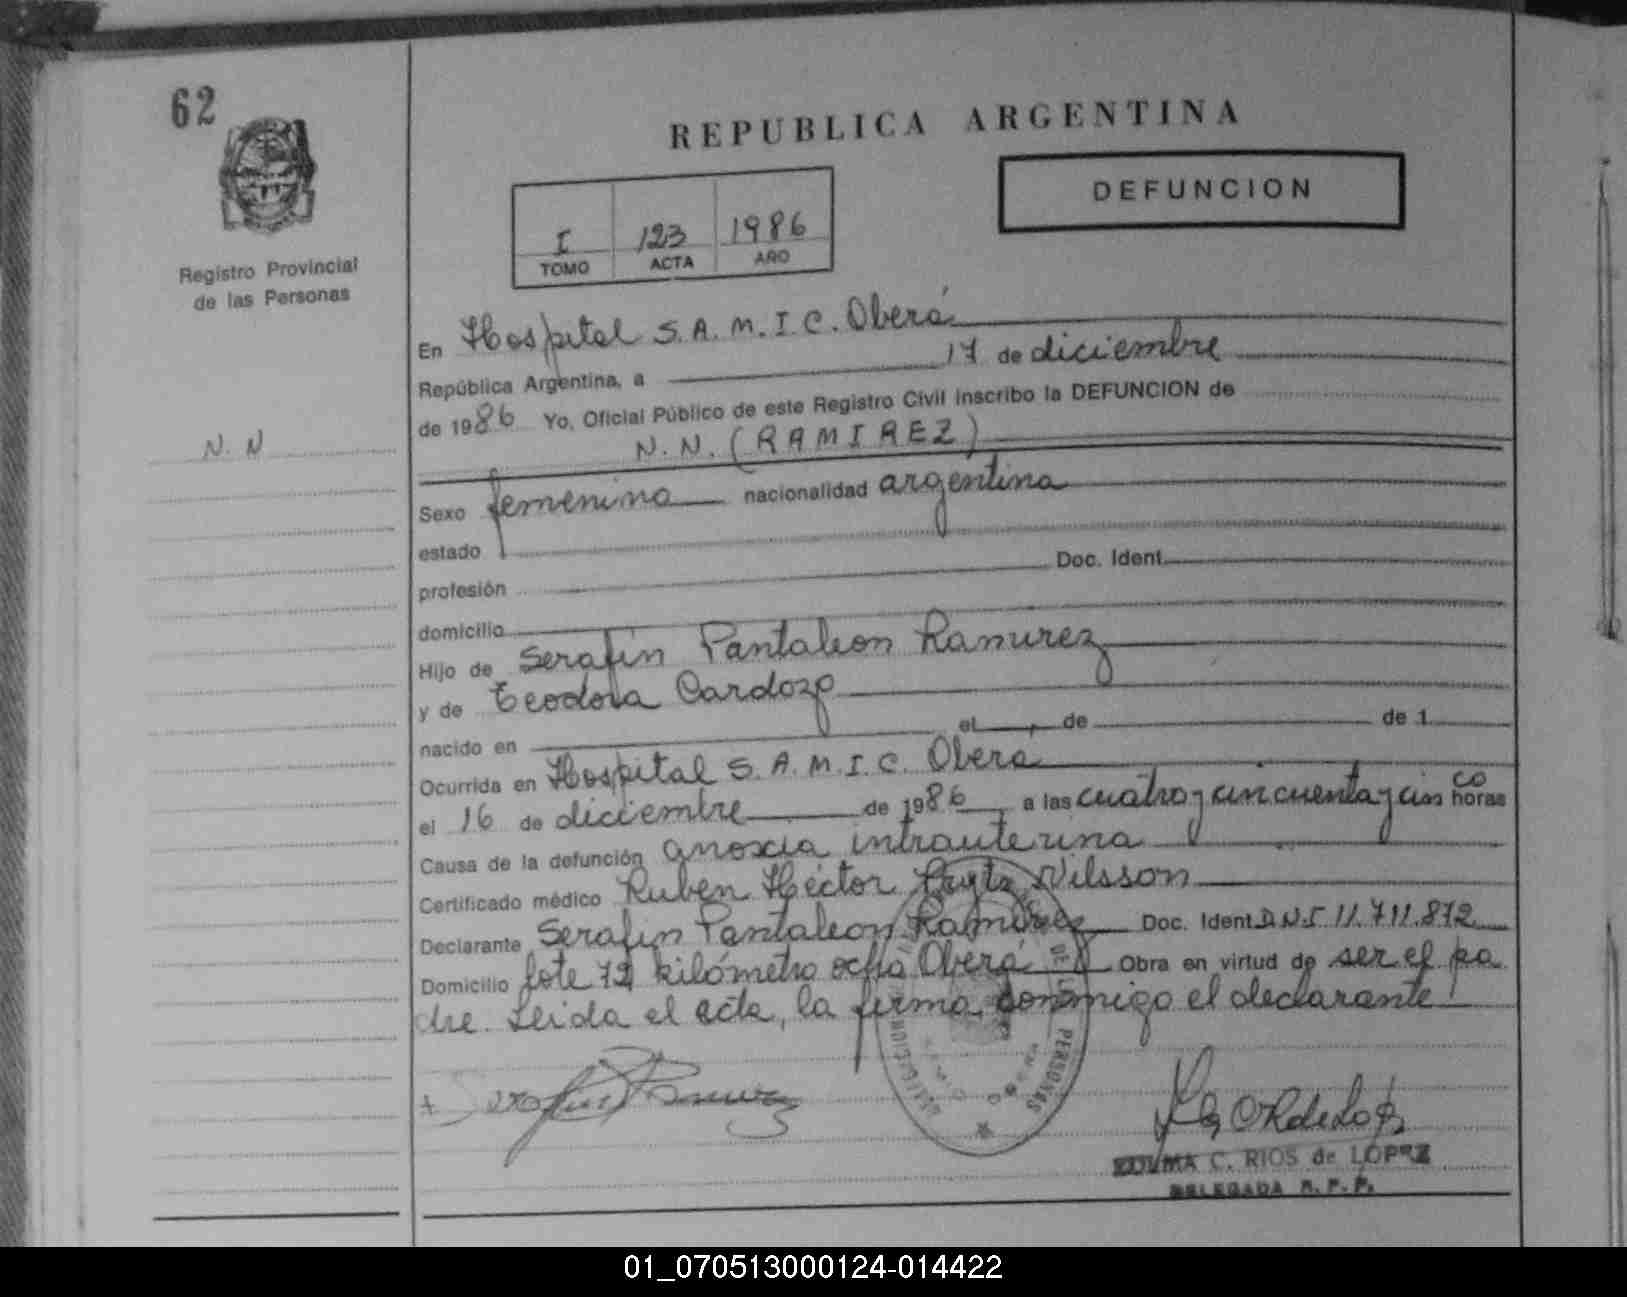 62
REPUBLICA ARGENTINA
DEFUNCION
I 123 1986
TOMO ACTA AÑO
Registro Provincial
de las Personas
En Hospital S.A.M.I.C. Oberá
República Argentina, a 17 de diciembre
de 1986 Yo, Oficial Público de este Registro Civil inscribo la DEFUNCION de
N. N
N. N. (RAMIREZ)
Sexo femenino nacionalidad argentina
estado
profesión Doc. Ident.
domicilio
Hijo de Serafin Pantaleon Ramirez
y de Teodora Cardozo
nacido en el , de de 1
Ocurrida en Hospital S.A.M.I.C. Obera
el 16 de diciembre de 1986 a las cuatro y cincuenta y cin co horas
Causa de la defunción anoxia intrauterina
Certificado médico Ruben Héctor Nilsson
Declarante Serafin Pantaleon Ramirez Doc. Ident D.N.I 11.711.872
Domicilio lote 72 kilómetro ocho Oberá Obra en virtud de ser el pa
dre. Leida el acta, la firma conmigo el declarante
DE LAS PERSONAS
C. RIOS de LOPEZ
DELEGADA R. P. P.
01_070513000124-014422